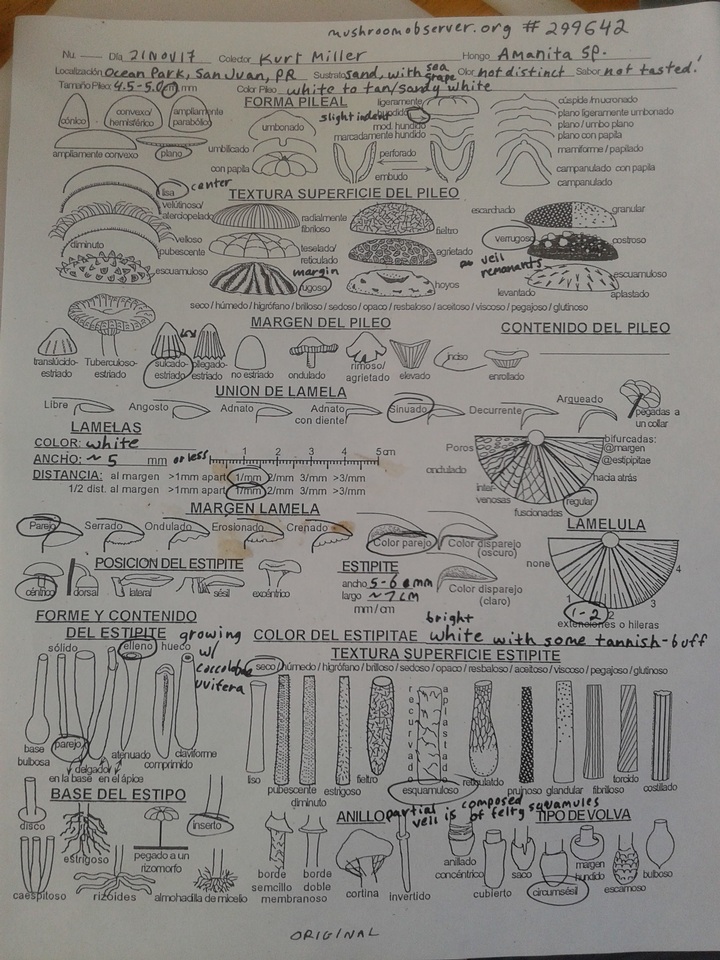 mushroomobserver.org # 299642
Nu. Día 21NOV17 Colector Kurt Miller Hongo Amanita sp.
Localización Ocean Park, San Juan, PR Sustrato sand, with sea grape Olor not distinct Sabor not tasted!
Tamaño Pileo: 4.5-5.0 cm mm Color Pileo white to tan/sandy white
FORMA PILEAL
cónico convexo/ hemisférico ampliamente parabólico
ampliamente convexo plano
umbonado
umbilicado
con papila
ligeramente hundido
slight indent
mod. hundido
marcadamente hundido
perforado
embudo
cúspide/mucronado
plano ligeramente umbonado
plano / umbo plano
plano con papila
mamiforme / papilado
campanulado con papila
campanulado
TEXTURA SUPERFICIE DEL PILEO
lisa center
velutinoso/ aterciopelado
velloso
diminuto pubescente
escuamuloso
radialmente fibriloso
teselado/ reticulado
margin
rugoso
fieltro
agrietado
hoyos
escarchado granular
verrugoso costroso
as veil remnants
escuamuloso
levantado aplastado
seco / húmedo / higrófano / brilloso / sedoso / opaco / resbaloso / aceitoso / viscoso / pegajoso / glutinoso
MARGEN DEL PILEO
CONTENIDO DEL PILEO
translúcido-estriado Tuberculoso-estriado sulcado-estriado plegado-estriado no estriado ondulado rimoso/ agrietado elevado inciso enrollado
UNION DE LAMELA
Libre Angosto Adnato Adnato con diente Sinuado Decurrente Arqueado pegadas a un collar
LAMELAS
COLOR: white
ANCHO: ~5 mm or less 1 2 3 4 5cm
DISTANCIA: al margen >1mm apart 1/mm 2/mm 3/mm >3/mm
1/2 dist. al margen >1mm apart 1/mm 2/mm 3/mm >3/mm
Poros
ondulado
inter-venosas
fuscionadas
bifurcadas: @margen @estipitipe
hacia atrás
regular
MARGEN LAMELA
Parejo Serrado Ondulado Erosionado Crenado
Color parejo Color disparejo (oscuro)
Color disparejo (claro)
LAMELULA
none 1 2 3 4
1-2
extenciones o hileras
POSICION DEL ESTIPITE
céntrico dorsal lateral sésil excéntrico
ESTIPITE
ancho 5-6 mm
largo ~7cm
mm / cm
FORME Y CONTENIDO DEL ESTIPITE
growing w/ coccoloba uvifera
sólido elleno hueco
base bulbosa parejo delgado en la base en el ápice atenuado comprimido claviforme
COLOR DEL ESTIPITAE bright white with some tannish-buff
TEXTURA SUPERFICIE ESTIPITE
seco / húmedo / higrófano / brilloso / sedoso / opaco / resbaloso / aceitoso / viscoso / pegajoso / glutinoso
recurvado aplastado
liso pubescente diminuto estrigoso fieltro esquamuloso retiqulatdo pruinoso glandular fibrilloso torcido costillado
BASE DEL ESTIPO
disco estrigoso pegado a un rizomorfo inserto
caespiloso rizóides almohadilla de micelio
ANILLO
partial veil is composed of felty squamules
borde semcillo borde doble membranoso cortina invertido
TIPO DE VOLVA
anillado concéntrico cubierto saco circumsésil margen hundido escamoso bulboso
ORIGINAL